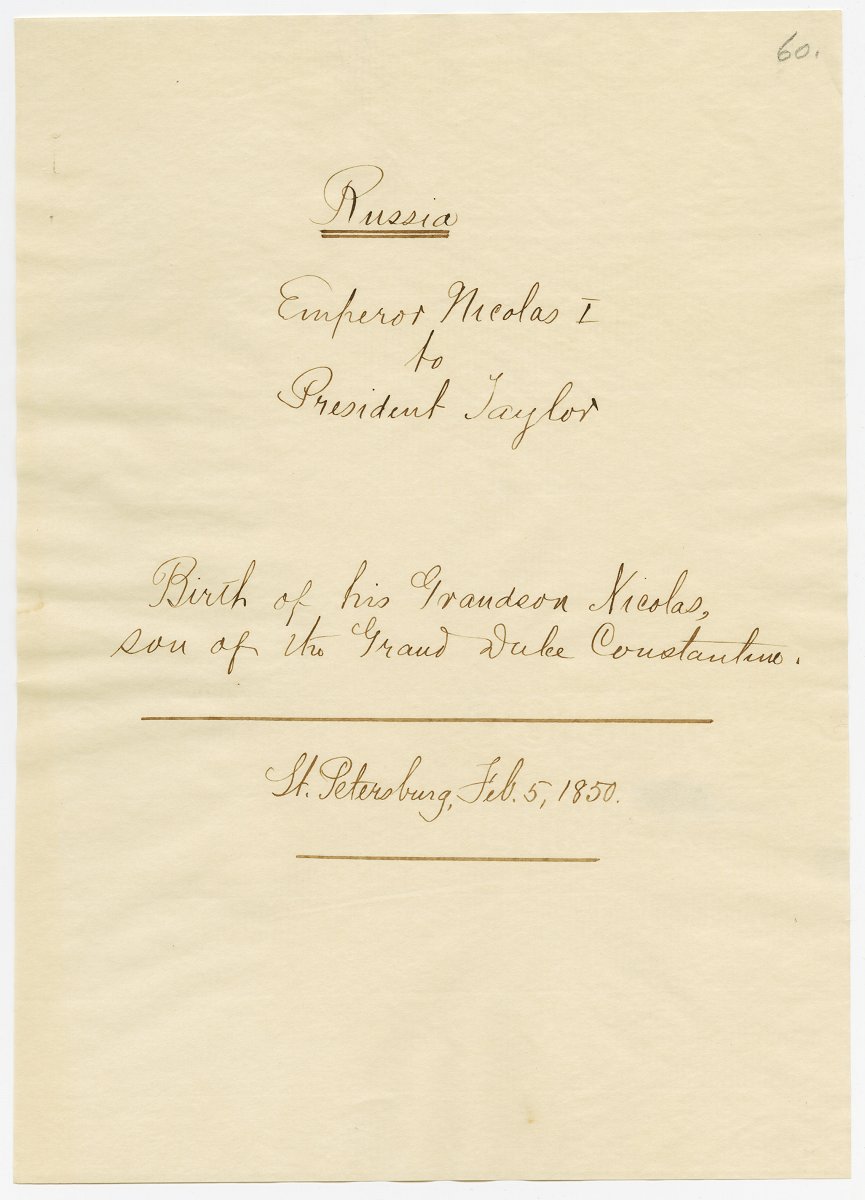 60.
Russia
Emperor Nicolas I
to
President Taylor
Birth of his Grandson Nicolas,
son of the Grand Duke Constantine.
St. Petersburg, Feb. 5, 1850.